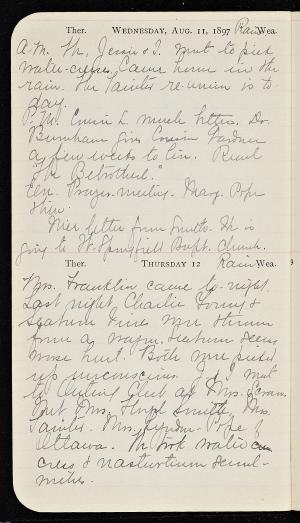 Ther. WEDNESDAY, AUG. 11, 1897 Rain Wea.
A.M. Th, Jessie & I. went to pick
water-cress, came home in the
rain. The Tainter re-union is to
day.
P.M. Cousin L. much better, Dr.
Burnham gives Cousin Gardner
a few weeks to live. Read
"The Betrothed."
Eve. Prayer-meeting. Mary Pope
there.
Nice letter from Smith. He is
going to W. Springfield Bapt. Church.
Ther. THURSDAY 12 Rain Wea.
Mrs. Franklin came to-night.
Last night, Charlie Young &
were thrown
from a wagon. seems
worse hurt. Both were picked
up unconscious. & I went
to Outing Club at Mrs.
Mrs. Smith, Mrs.
Tainter. Mrs. Lyndon Pope of
Ottawa. We took water
cress & nasturtium